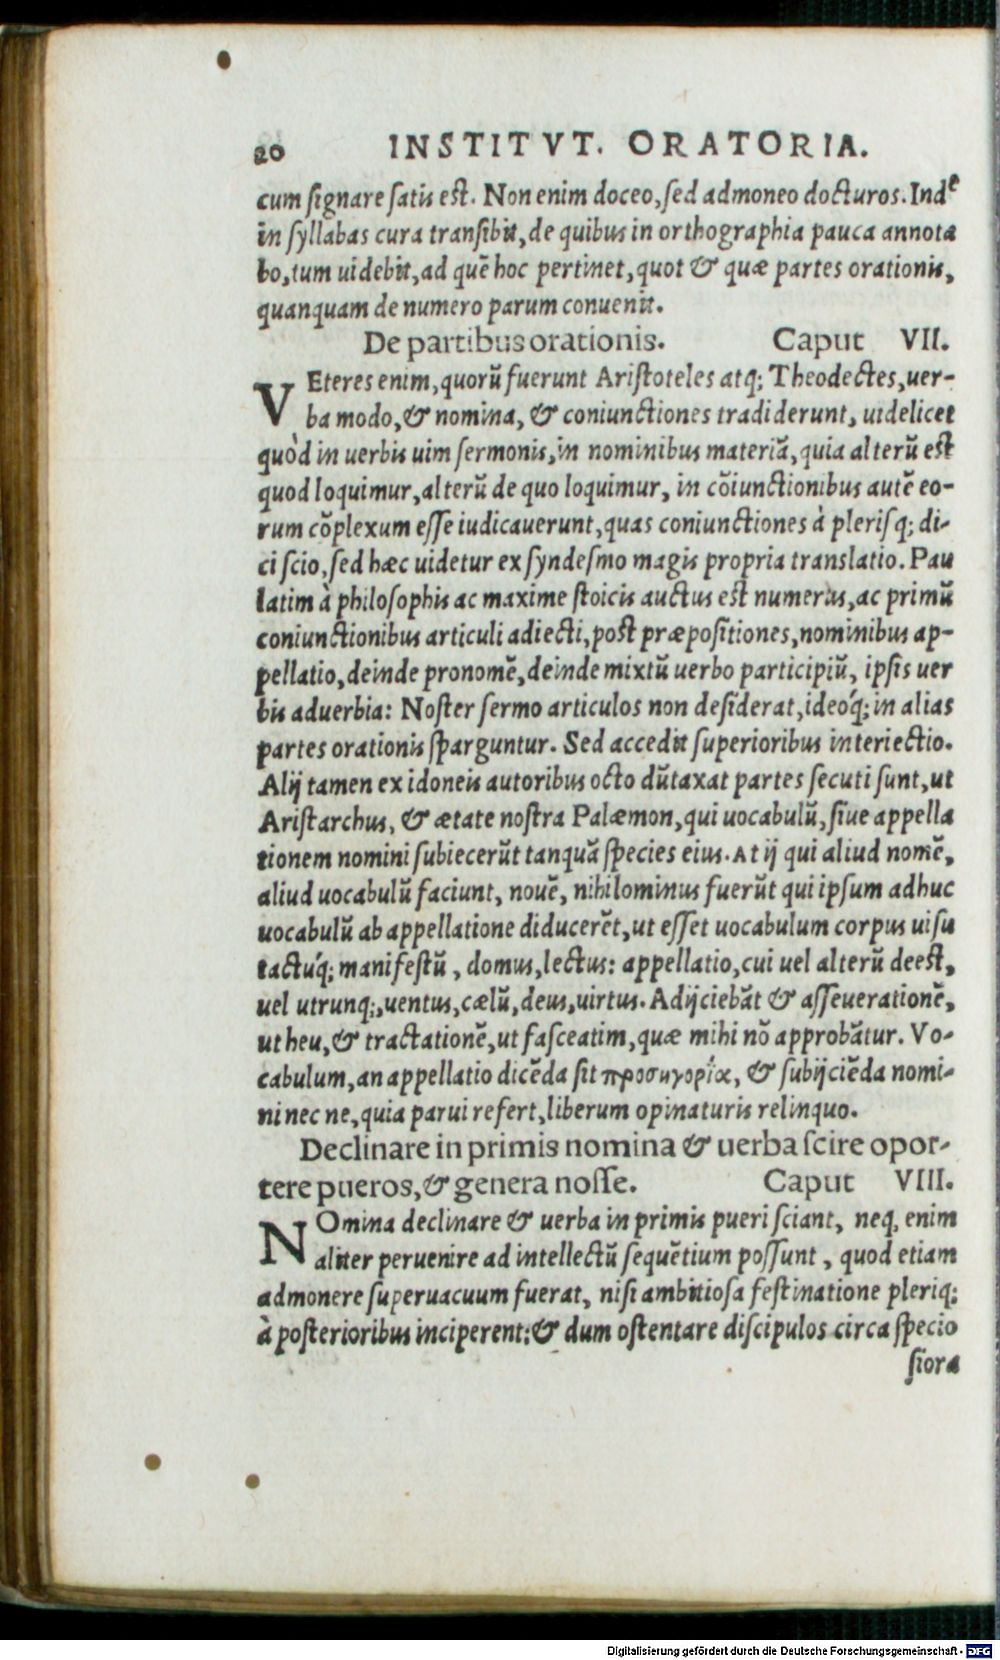 20 INSTITVT. ORATORIA.
cum ſignare ſatis eſt. Non enim doceo, ſed admoneo docturos. Inde
in ſyllabas cura tranſibit, de quibus in orthographia pauca annota
bo, tum uidebit, ad quẽ hoc pertinet, quot & quæ partes orationis,
quanquam de numero parum conuenit.
De partibus orationis. Caput VII.
VEteres enim, quorũ fuerunt Ariſtoteles atq; Theodectes, uer-
ba modo, & nomina, & coniunctiones tradiderunt, uidelicet
quòd in uerbis uim ſermonis, in nominibus materiã, quia alterũ eſt
quod loquimur, alterũ de quo loquimur, in cõiunctionibus autẽ eo-
rum cõplexum eſſe iudicauerunt, quas coniunctiones à pleriſq; di-
ci ſcio, ſed hæc uidetur ex ſyndeſmo magis propria translatio. Pau
latim à philoſophis ac maxime ſtoicis auctus eſt numerus, ac primũ
coniunctionibus articuli adiecti, poſt præpoſitiones, nominibus ap-
pellatio, deinde pronomẽ, deinde mixtũ uerbo participiũ, ipſis uer
bis aduerbia: Noſter ſermo articulos non deſiderat, ideoq́; in alias
partes orationis ſparguntur. Sed accedit ſuperioribus interiectio.
Alij tamen ex idoneis autoribus octo dũtaxat partes ſecuti ſunt, ut
Ariſtarchus, & ætate noſtra Palæmon, qui uocabulũ, ſiue appella
tionem nomini ſubiecerũt tanquã ſpecies eius. At ij qui aliud nomẽ,
aliud uocabulũ faciunt, nouẽ, nihilominus fuerũt qui ipſum adhuc
uocabulũ ab appellatione diducerẽt, ut eſſet uocabulum corpus uiſu
tactuq́; manifeſtũ, domus, lectus: appellatio, cui uel alterũ deeſt,
uel utrunq;, uentus, cælũ, deus, uirtus. Adijciebãt & aſſeuerationẽ,
ut heu, & tractationẽ, ut faſceatim, quæ mihi nõ approbãtur. Vo-
cabulum, an appellatio dicẽda ſit προσηγορία, & ſubijciẽda nomi-
ni nec ne, quia parui refert, liberum opinaturis relinquo.
Declinare in primis nomina & uerba ſcire opor-
tere pueros, & genera noſſe. Caput VIII.
NOmina declinare & uerba in primis pueri ſciant, neq, enim
aliter peruenire ad intellectũ ſequẽtium poſſunt, quod etiam
admonere ſuperuacuum fuerat, niſi ambitioſa feſtinatione pleriq;
à poſterioribus inciperent: & dum oſtentare diſcipulos circa ſpecio
ſiora
Digitalisierung gefördert durch die Deutsche Forschungsgemeinschaft - DFG